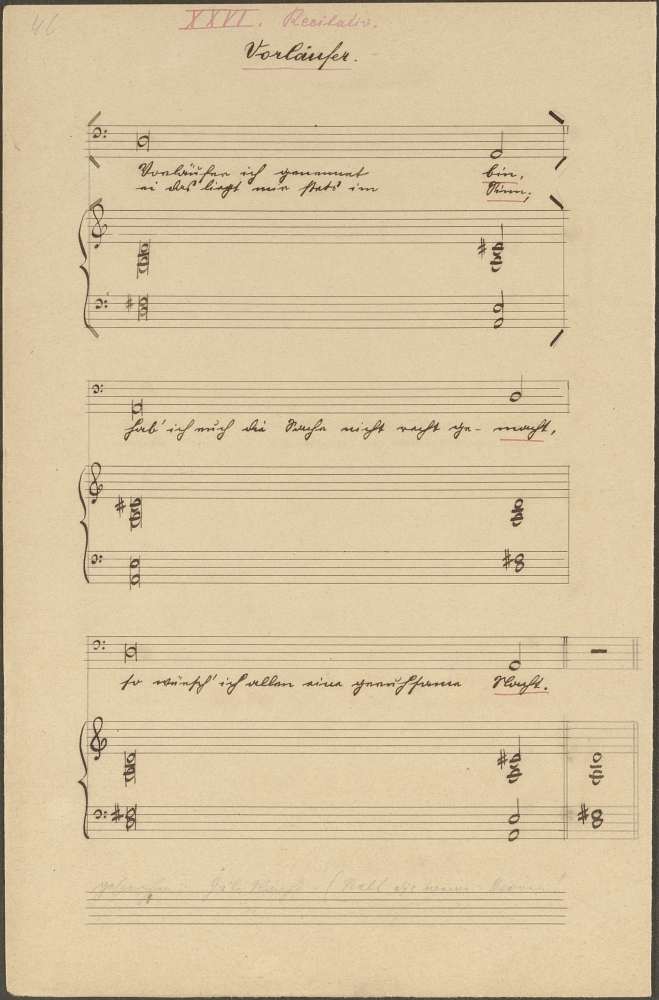 46
XXVI. Recitativ.
Vorläufer.
Vorläufer ich genennet bin,
ei das liegt mir stets im Sinn;
hab' ich euch die Sache nicht recht ge- macht,
so wünsch' ich allen eine geruhsame Nacht.